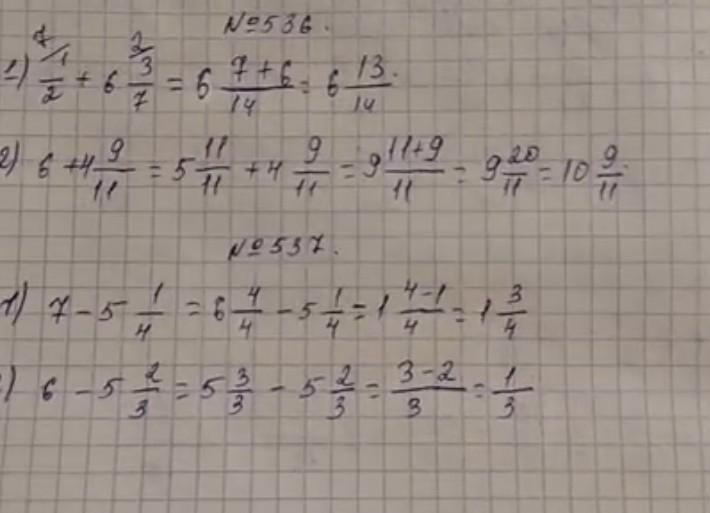 №536.
1) 7/ 1/2 + 6 2/ 3/7 = 6 7+6/14 = 6 13/14.
2) 6 + 4 9/11 = 5 11/11 + 4 9/11 = 9 11+9/11 = 9 20/11 = 10 9/11.
№537.
1) 7 - 5 1/4 = 6 4/4 - 5 1/4 = 1 4-1/4 = 1 3/4
) 6 - 5 2/3 = 5 3/3 - 5 2/3 = 3-2/3 = 1/3